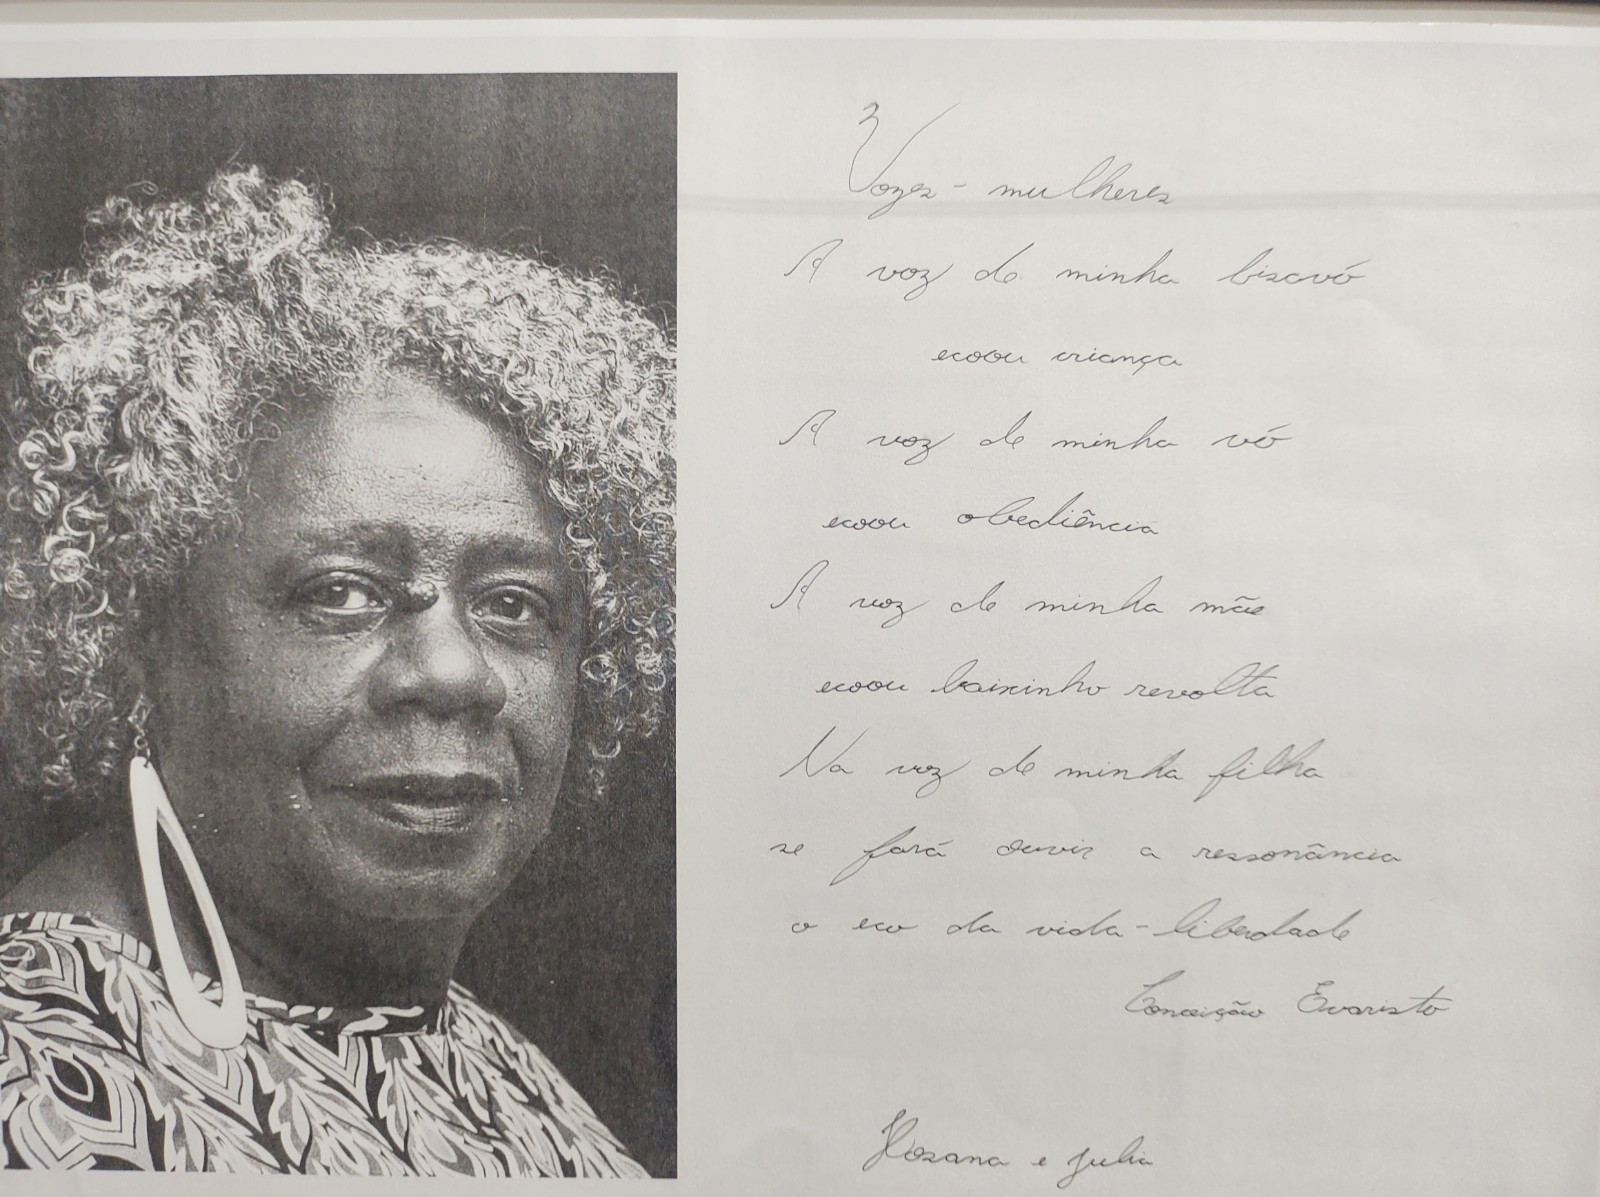 Vozes-mulheres
A voz de minha bisavó
ecoou criança
A voz de minha vó
ecoou obediência
A voz de minha mãe
ecoou baixinho revolta
Na voz de minha filha
se fará ouvir a ressonância
o eco da vida-liberdade
Conceição Evaristo
Hosana e Julia